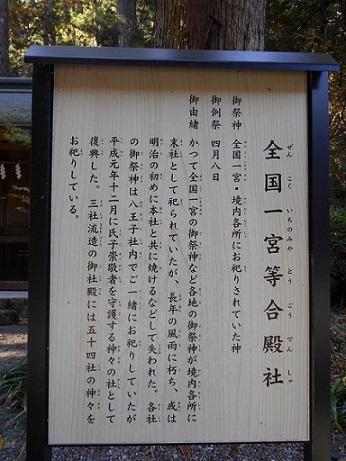 全国一宮等合殿社
ぜんこくいちのみやとうごうでんしゃ
御祭神　全国一宮・境内各所にお祀りされていた神
御例祭　四月八日
御由緒　かつて全国一宮の御祭神など各地の御祭神が境内各所に
末社として祀られていたが、長年の風雨に朽ち、或は
明治の初めに本社と共に焼けるなどして失われた。各社
の御祭神は八王子社内でご一緒にお祀りしていたが
平成元年十二月に氏子崇敬者を守護する神々の社として
復興した。三社流造の御社殿には五十四社の神々を
お祀りしている。